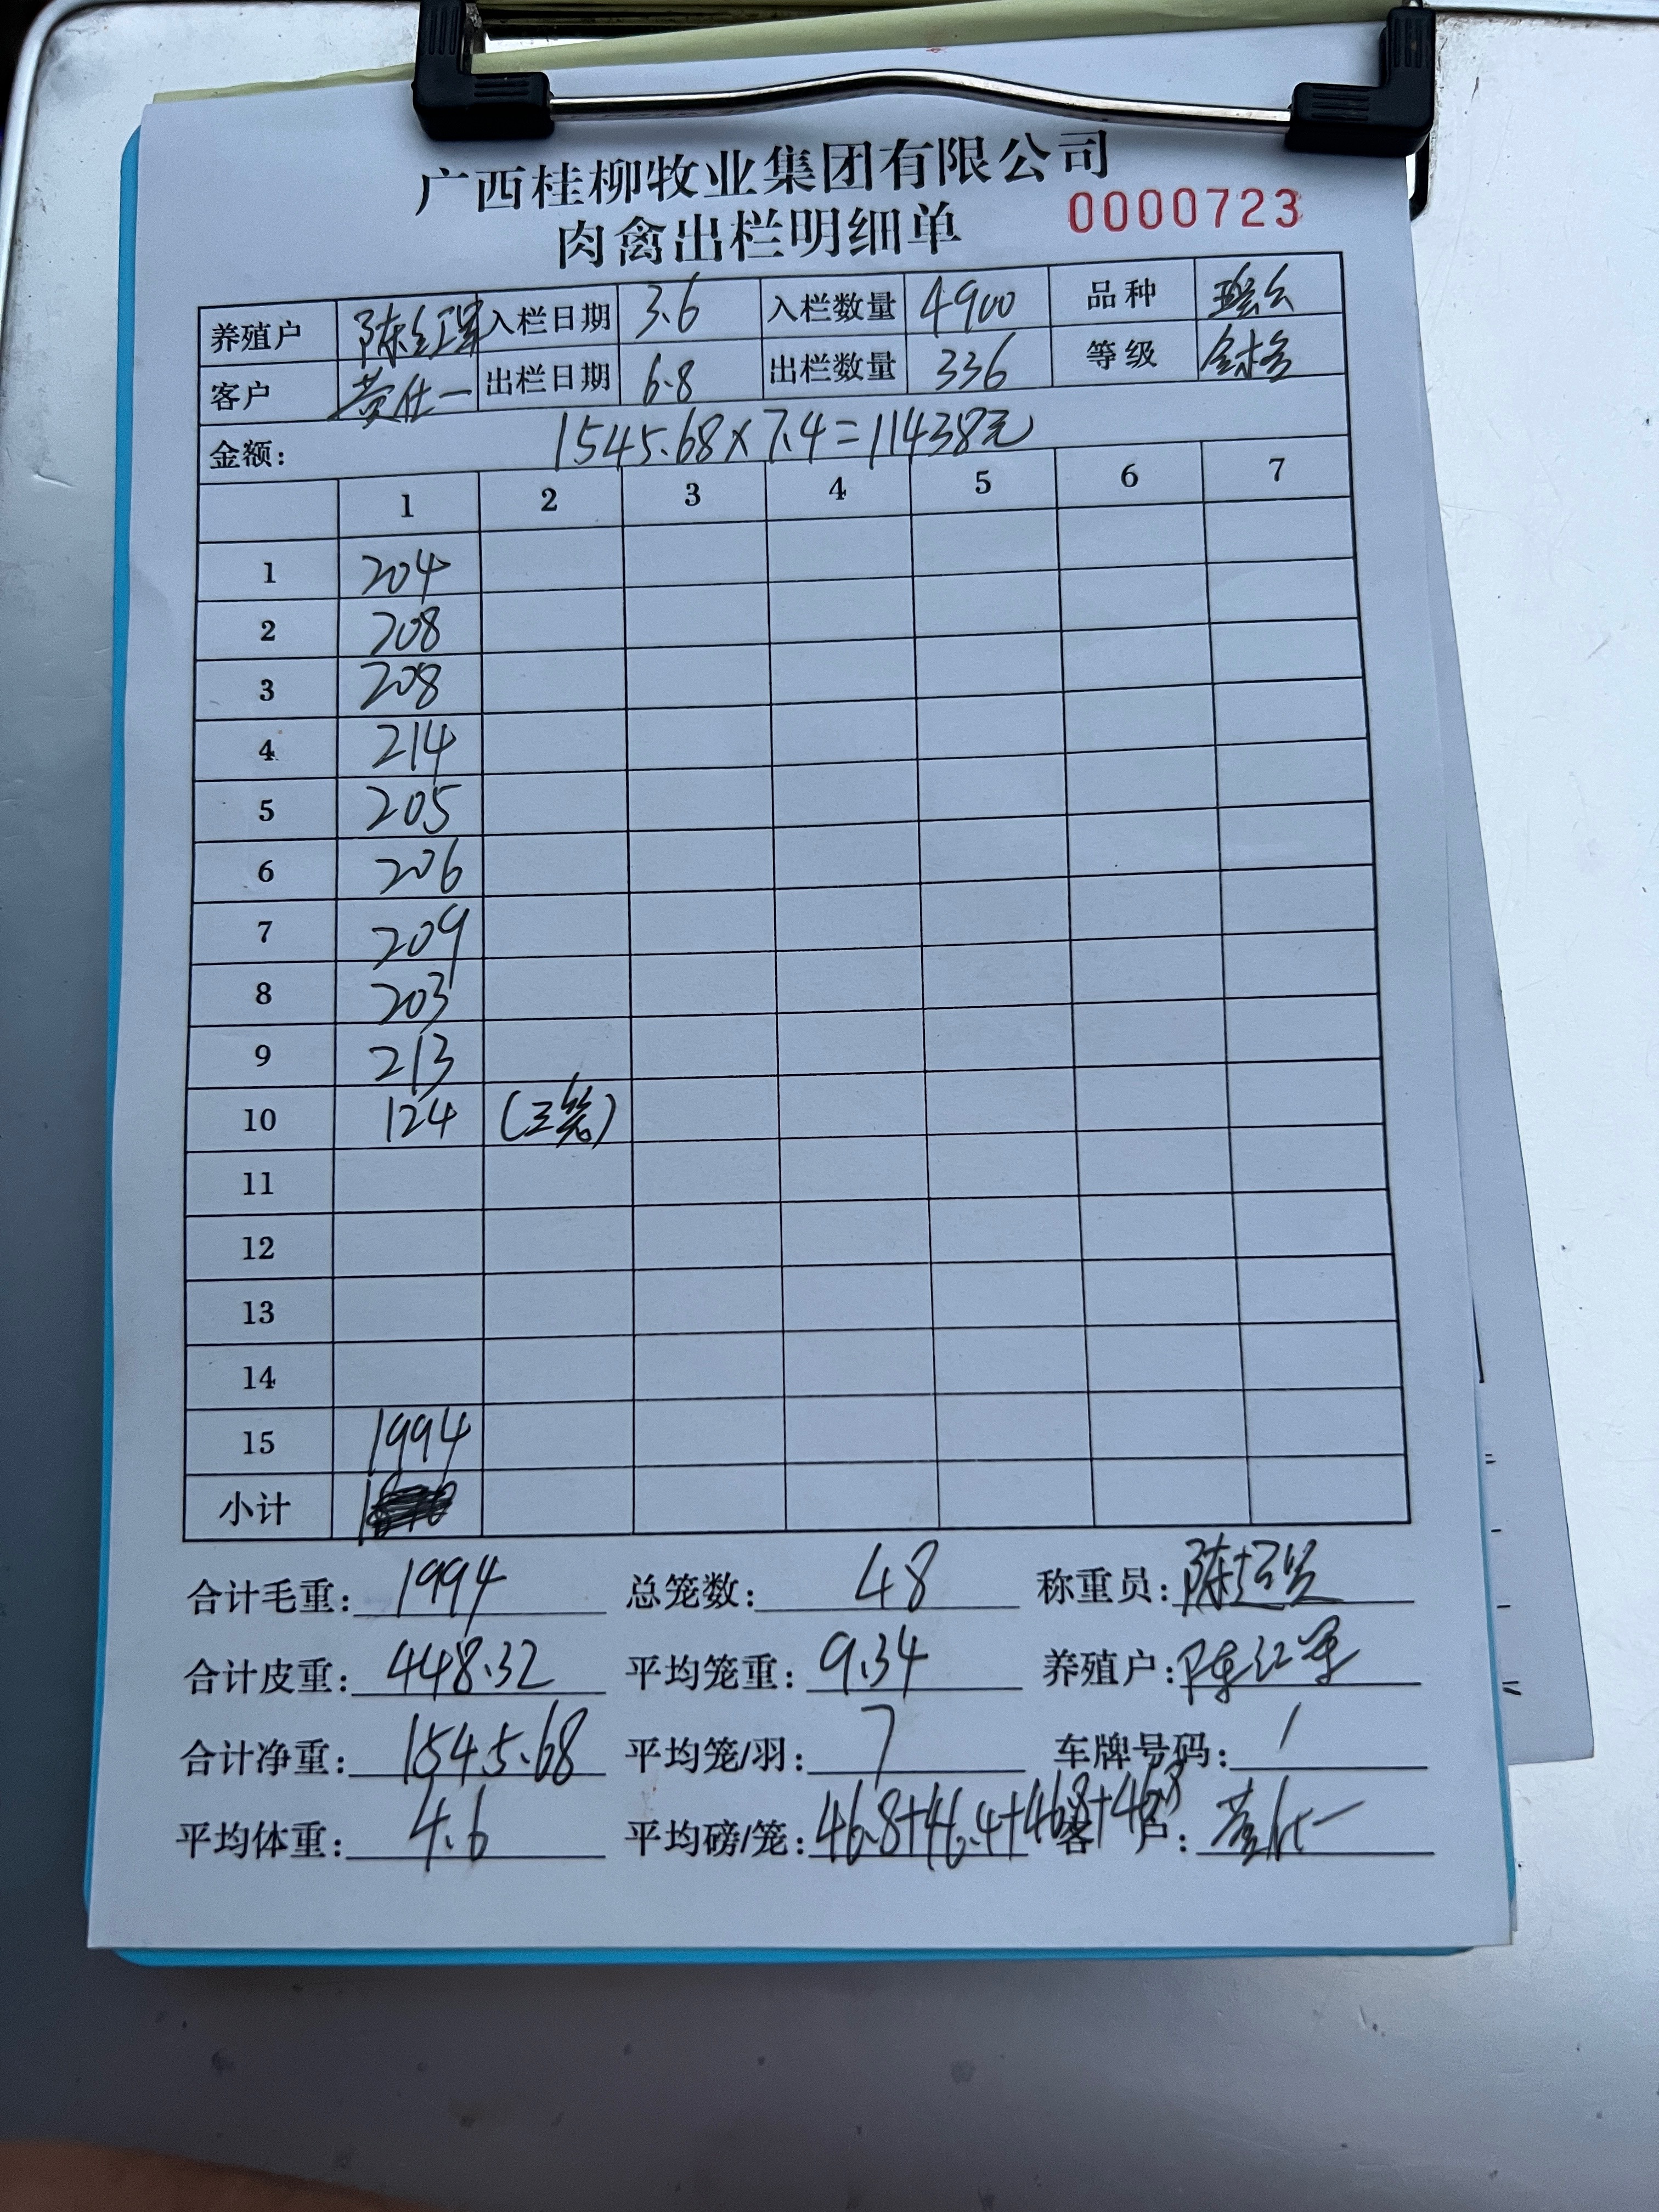 广西桂柳牧业集团有限公司
肉禽出栏明细单 0000723
养殖户 陈红军 入栏日期 3.6 入栏数量 4900 品种
客户 黄仕一 出栏日期 6.8 出栏数量 336 等级
金额: 1545.68×7.4=11438元
1 2 3 4 5 6 7
1 204
2 208
3 208
4 214
5 205
6 206
7 209
8 203
9 213
10 124 (三笼)
11
12
13
14
15 1994
小计
合计毛重: 1994 总笼数: 48 称重员: 陈超贤
合计皮重: 448.32 平均笼重: 9.34 养殖户: 陈红军
合计净重: 1545.68 平均笼/羽: 7 车牌号码: /
平均体重: 4.6 平均磅/笼: 46.8+46.4+46.8+46.8 客户: 黄仕一